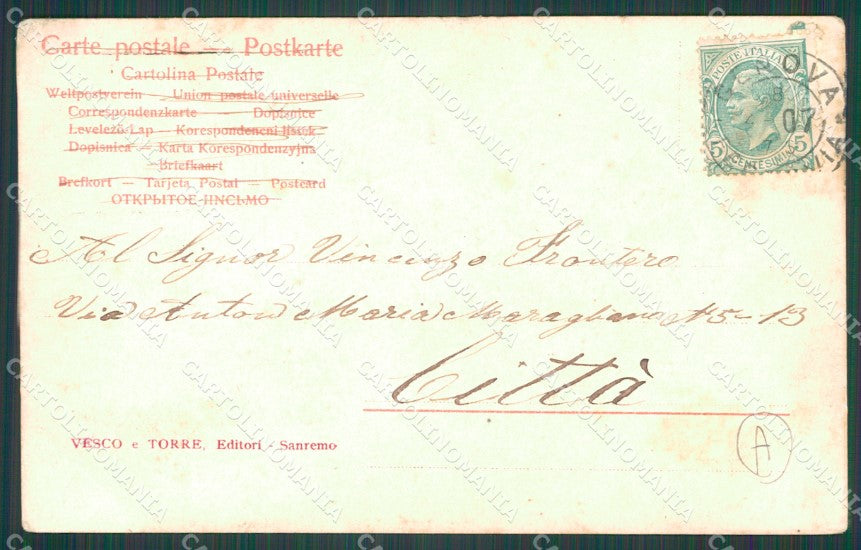 Carte postale — Postkarte
Cartolina Postale
Weltpostverein — Union postale universelle
Correspondenzkarte — Dopisnice
Levelező-Lap — Korespondencni listek
Dopisnica — Karta Korespondenzyjna
Briefkaart
Brefkort — Tarjeta Postal — Postcard
ОТКРЫТОЕ ПИСЬМО
POSTE ITALIANE
5 CENTESIMI 5
NOVA
8
07
Al Signor Vincenzo Frontero
Via Anton Maria Maragliano 5-13
Città
VESCO e TORRE, Editori - Sanremo
A
CARTOLINOMANIA